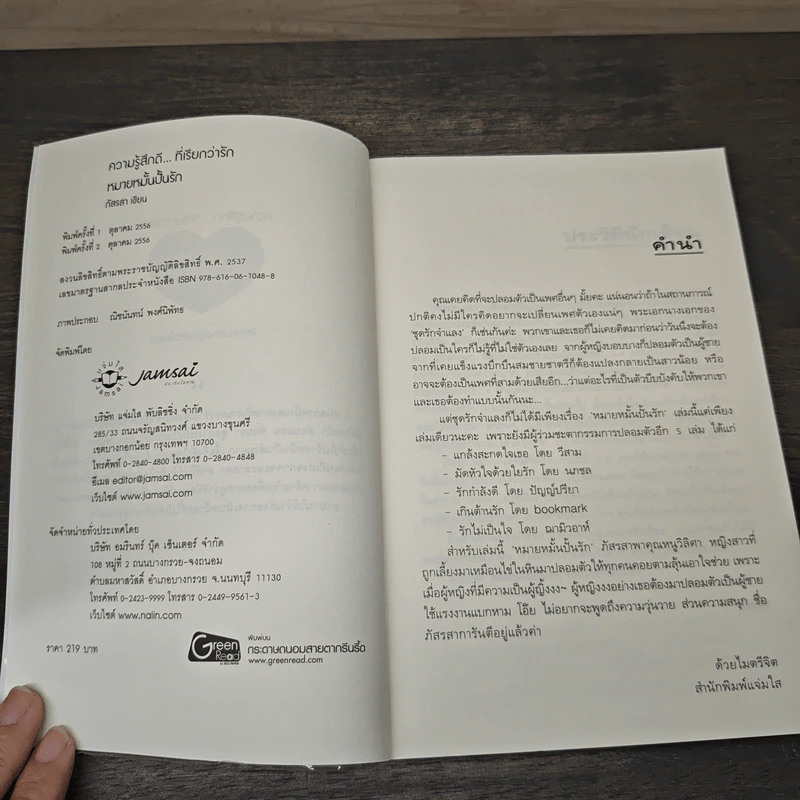 ความรู้สึกดี... ที่เรียกว่ารัก
หมายหมั้นปั้นรัก
ภัสรสา เขียน
พิมพ์ครั้งที่ 1 ตุลาคม 2556
พิมพ์ครั้งที่ 2 ตุลาคม 2556
สงวนลิขสิทธิ์ตามพระราชบัญญัติลิขสิทธิ์ พ.ศ. 2537
เลขมาตรฐานสากลประจำหนังสือ ISBN 978-616-06-1048-8
ภาพประกอบ ณิชนันทน์ พงศ์นิพัทธ
จัดพิมพ์โดย
jamsai
บริษัท แจ่มใส พับลิชชิ่ง จำกัด
285/33 ถนนจรัญสนิทวงศ์ แขวงบางขุนศรี
เขตบางกอกน้อย กรุงเทพฯ 10700
โทรศัพท์ 0-2840-4800 โทรสาร 0-2840-4848
อีเมล editor@jamsai.com
เว็บไซต์ www.jamsai.com
จัดจำหน่ายทั่วประเทศโดย
บริษัท อมรินทร์ บุ๊ค เซ็นเตอร์ จำกัด
108 หมู่ที่ 2 ถนนบางกรวย-จงถนอม
ตำบลมหาสวัสดิ์ อำเภอบางกรวย จ.นนทบุรี 11130
โทรศัพท์ 0-2423-9999 โทรสาร 0-2449-9561-3
เว็บไซต์ www.naiin.com
ราคา 219 บาท
Green Read
พิมพ์บน
กระดาษถนอมสายตากรีนรี้ด
www.greenread.com
คำนำ
คุณเคยคิดที่จะปลอมตัวเป็นเพศอื่นๆ มั้ยคะ แน่นอนว่าถ้าในสถานการณ์
ปกติคงไม่มีใครคิดอยากจะเปลี่ยนเพศตัวเองแน่ๆ พระเอกนางเอกของ
'ชุดรักจำแลง' ก็เช่นกันค่ะ พวกเขาและเธอก็ไม่เคยคิดมาก่อนว่าวันนึงจะต้อง
ปลอมเป็นใครก็ไม่รู้ที่ไม่ใช่ตัวเองเลย จากผู้หญิงบอบบางก็ปลอมตัวเป็นผู้ชาย
จากที่เคยแข็งแรงบึกบึนสมชายชาตรีก็ต้องแปลงกลายเป็นสาวน้อย หรือ
อาจจะต้องเป็นเพศที่สามด้วยเสียอีก...ว่าแต่อะไรที่เป็นตัวบีบบังคับให้พวกเขา
และเธอต้องทำแบบนั้นกันนะ...
แต่ชุดรักจำแลงก็ไม่ได้มีเพียงเรื่อง 'หมายหมั้นปั้นรัก' เล่มนี้แค่เพียง
เล่มเดียวนะคะ เพราะยังมีผู้ร่วมชะตากรรมการปลอมตัวอีก 5 เล่ม ได้แก่
- แกล้งสะกดใจเธอ โดย วิสาม
- มัดหัวใจด้วยใยรัก โดย นภชล
- รักกำลังดี โดย ปัญญ์ปรียา
- เกินต้านรัก โดย bookmark
- รักไม่เป็นใจ โดย ฌามิวอาห์
สำหรับเล่มนี้ 'หมายหมั้นปั้นรัก' ภัสรสาพาคุณหนูวิลิศา หญิงสาวที่
ถูกเลี้ยงมาเหมือนไข่ในหินมาปลอมตัวให้ทุกคนคอยตามลุ้นเอาใจช่วย เพราะ
เมื่อผู้หญิงที่มีความเป็นผู้ญิ้งงงง~ ผู้หญิงงงงอย่างเธอต้องมาปลอมตัวเป็นผู้ชาย
ใช้แรงงานแบกหาม โอ๊ย ไม่อยากจะพูดถึงความวุ่นวาย ส่วนความสนุก ชื่อ
ภัสรสาการันตีอยู่แล้วค่า
ด้วยไมตรีจิต
สำนักพิมพ์แจ่มใส